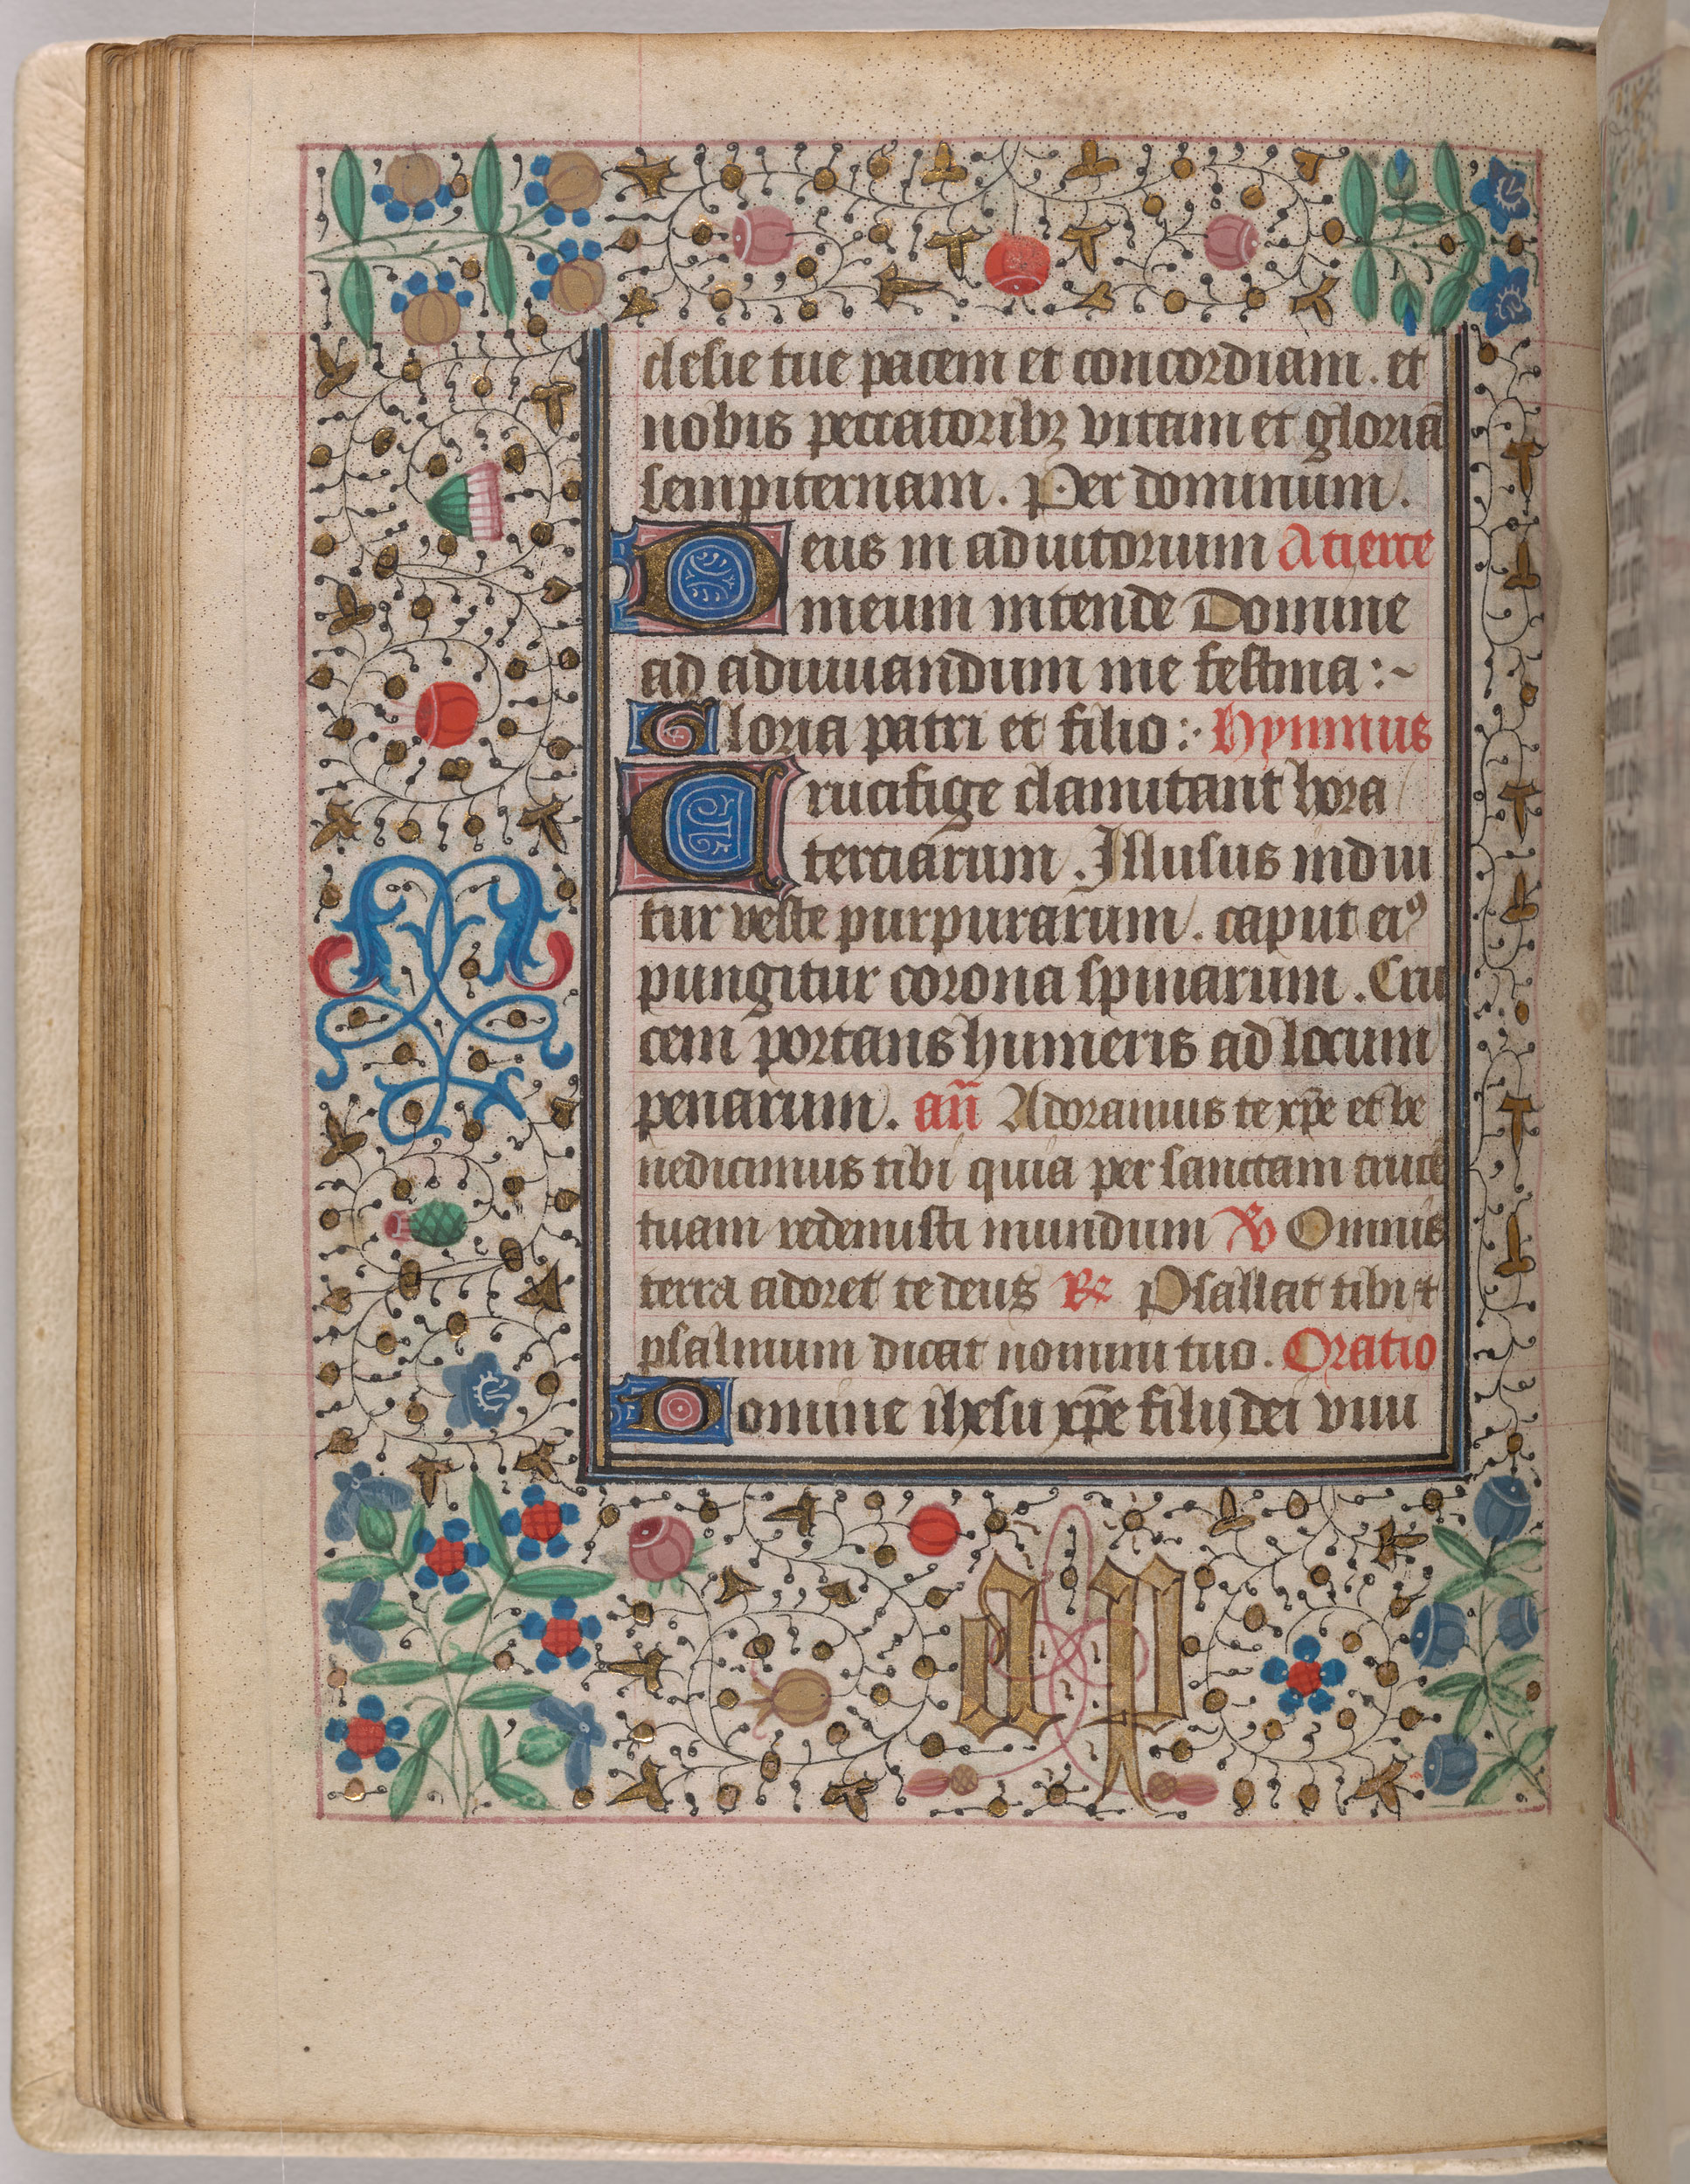 clesie tue pacem et concordiam. et
nobis peccatoribꝫ vitam et gloriā
sempiternam. Per dominum.
Deus in adiutorium A tierce
meum intende Domine
ad adiuuandum me festina :~
Gloria patri et filio :· Hympnus
Crucifige clamitant hora
terciarum. Illusus indui
tur veste purpurarum. caput eiꝰ
pungitur corona spinarum. Cru
cem portans humeris ad locum
penarum. añ Adoramus te xp̄e et be
nedicimus tibi quia per sanctam crucē
tuam redemisti mundum ℣ Omnis
terra adoret te deus ℟ Psallat tibi ⁊
psalmum dicat nomini tuo. Oratio
Domine ihesu xp̄e filij dei viui